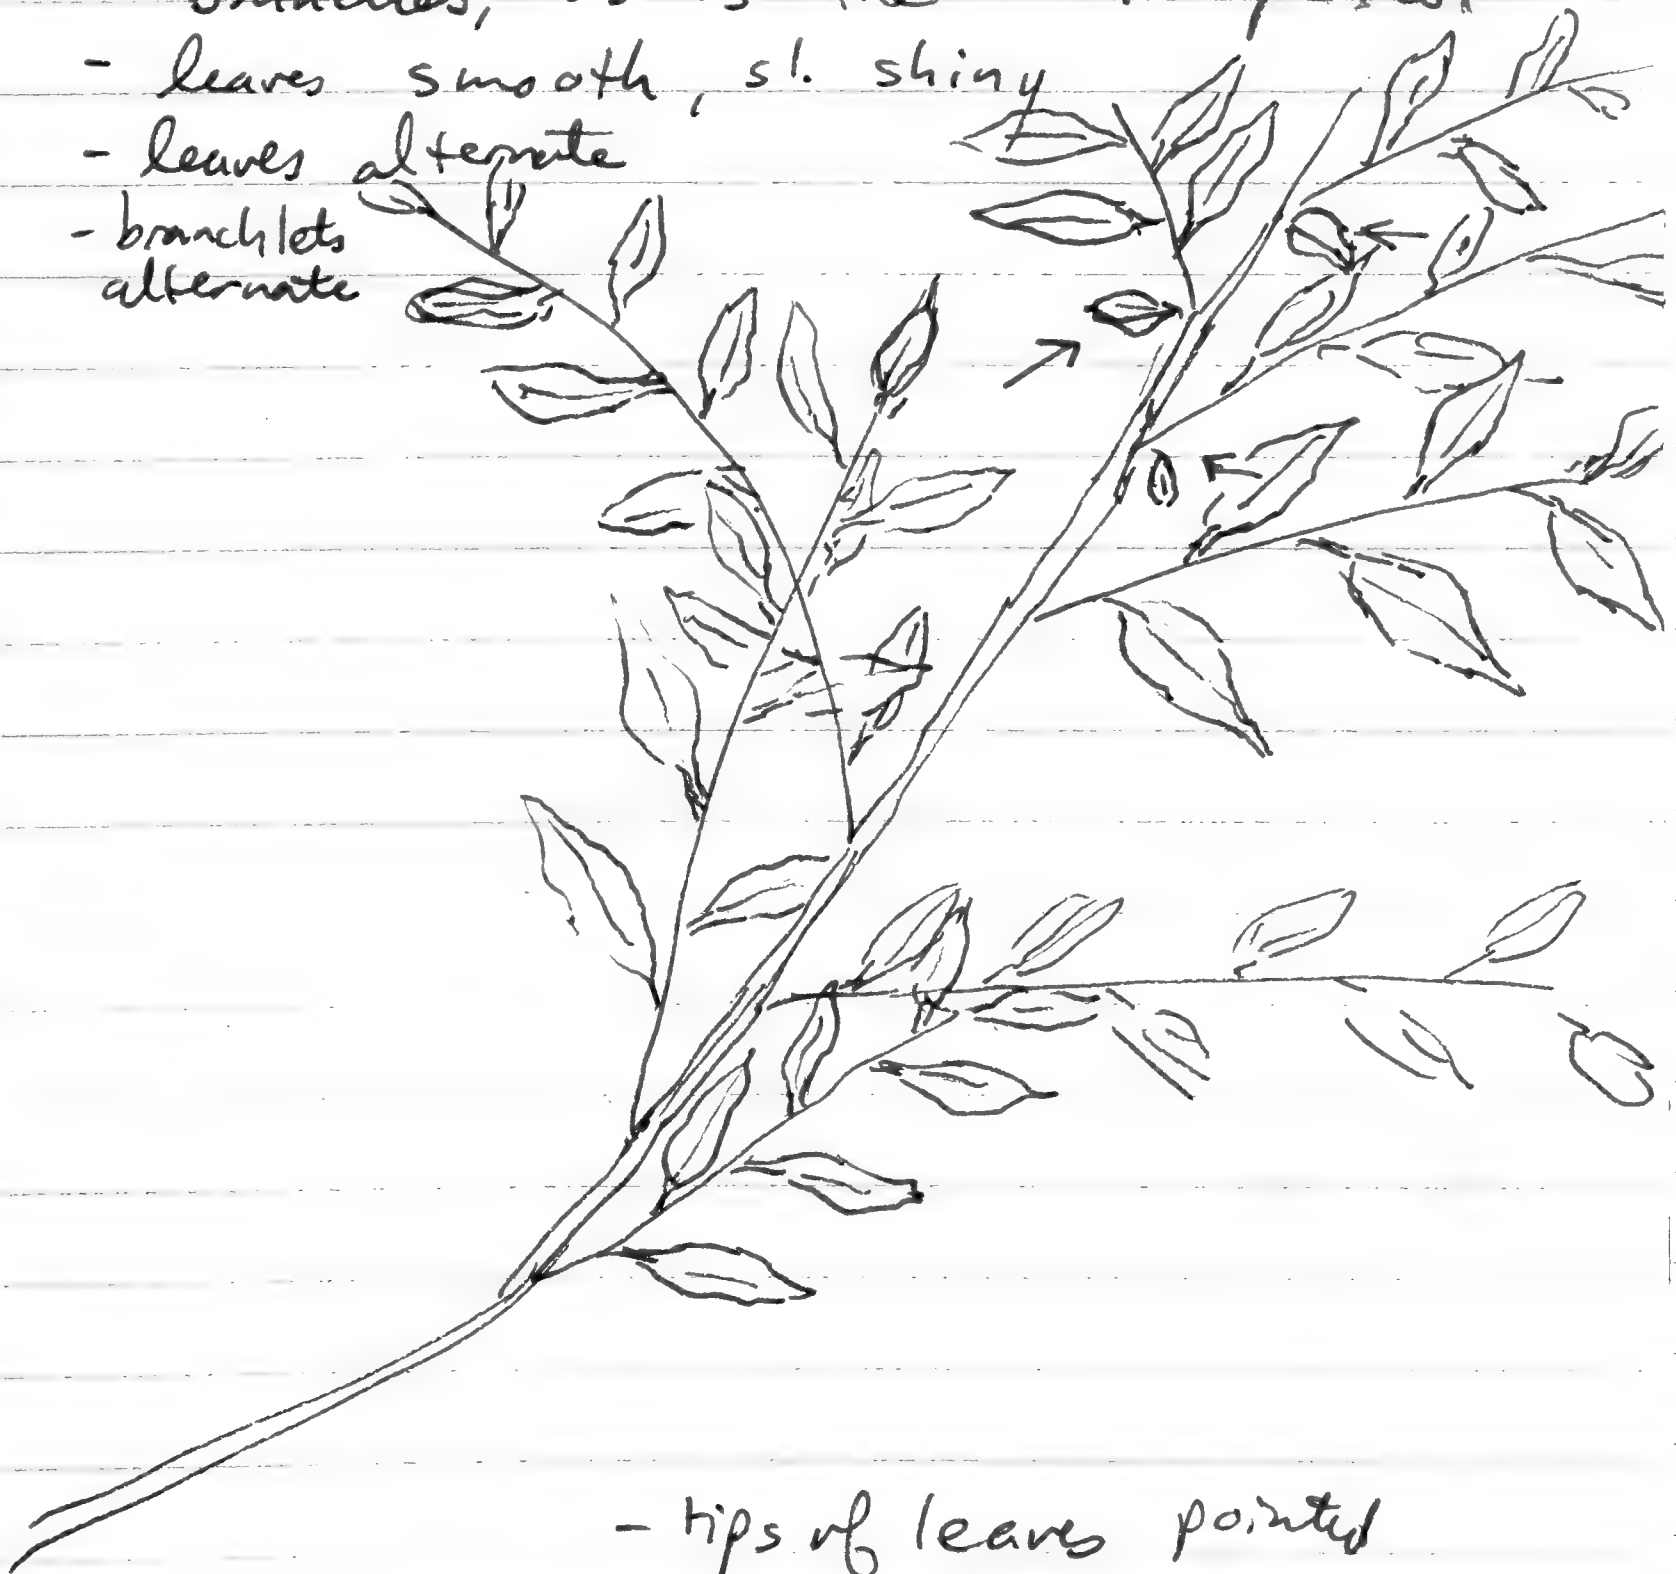 branches,
- leaves smooth, sl. shiny
- leaves alternate
- branchlets
alternate
- tips of leaves pointed